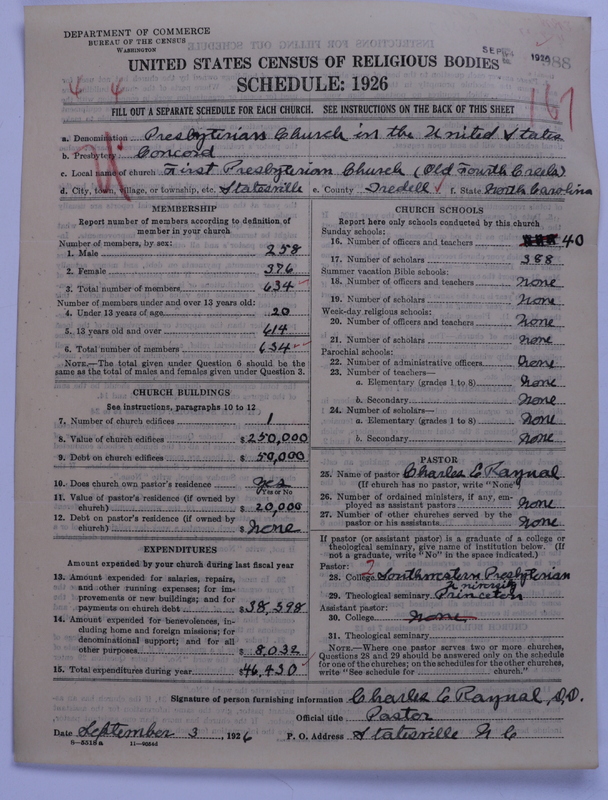 DEPARTMENT OF COMMERCE
BUREAU OF THE CENSUS
WASHINGTON
SEP
1926
UNITED STATES CENSUS OF RELIGIOUS BODIES
SCHEDULE: 1926
4 4
167
FILL OUT A SEPARATE SCHEDULE FOR EACH CHURCH. SEE INSTRUCTIONS ON THE BACK OF THIS SHEET
a. Denomination Presbyterian Church in the United States
b. Presbytery Concord
c. Local name of church First Presbyterian Church (Old Fourth Creek)
d. City, town, village, or township, etc. Statesville e. County Iredell f. State North Carolina
MEMBERSHIP
Report number of members according to definition of member in your church
Number of members, by sex:
1. Male 258
2. Female 376
3. Total number of members 634
Number of members under and over 13 years old:
4. Under 13 years of age 20
5. 13 years old and over 614
6. Total number of members 634
NOTE.—The total given under Question 6 should be the same as the total of males and females given under Question 3.
CHURCH BUILDINGS
See instructions, paragraphs 10 to 12
7. Number of church edifices 1
8. Value of church edifices $ 250,000
9. Debt on church edifices $ 50,000
10. Does church own pastor's residence? yes
Yes or No
11. Value of pastor's residence (if owned by church) $ 20,000
12. Debt on pastor's residence (if owned by church) $ None
EXPENDITURES
Amount expended by your church during last fiscal year
13. Amount expended for salaries, repairs, and other running expenses; for improvements or new buildings; and for payments on church debt $ 38,398
14. Amount expended for benevolences, including home and foreign missions; for denominational support; and for all other purposes $ 8,032
15. Total expenditures during year $ 46,430
CHURCH SCHOOLS
Report here only schools conducted by this church
Sunday schools:
16. Number of officers and teachers 40
17. Number of scholars 388
Summer vacation Bible schools:
18. Number of officers and teachers None
19. Number of scholars None
Week-day religious schools:
20. Number of officers and teachers None
21. Number of scholars None
Parochial schools:
22. Number of administrative officers None
23. Number of teachers—
a. Elementary (grades 1 to 8) None
b. Secondary None
24. Number of scholars—
a. Elementary (grades 1 to 8) None
b. Secondary None
PASTOR
25. Name of pastor Charles E Raynal
(If church has no pastor, write "None")
26. Number of ordained ministers, if any, employed as assistant pastors None
27. Number of other churches served by the pastor or his assistants None
If pastor (or assistant pastor) is a graduate of a college or theological seminary, give name of institution below. (If not a graduate, write "No" in the space indicated.)
Pastor:
28. College 2 Southwestern Presbyterian University
29. Theological seminary Princeton
Assistant pastor:
30. College None
31. Theological seminary
NOTE.—Where one pastor serves two or more churches, Questions 28 and 29 should be answered only on the schedule for one of the churches; on the schedules for the other churches, write "See schedule for church."
Signature of person furnishing information Charles E Raynal, D.D.
Official title Pastor
Date September 3, 1926 P. O. Address Statesville N C
8—5318a 11—90543